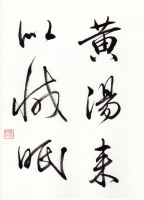 黄湯来
以眠